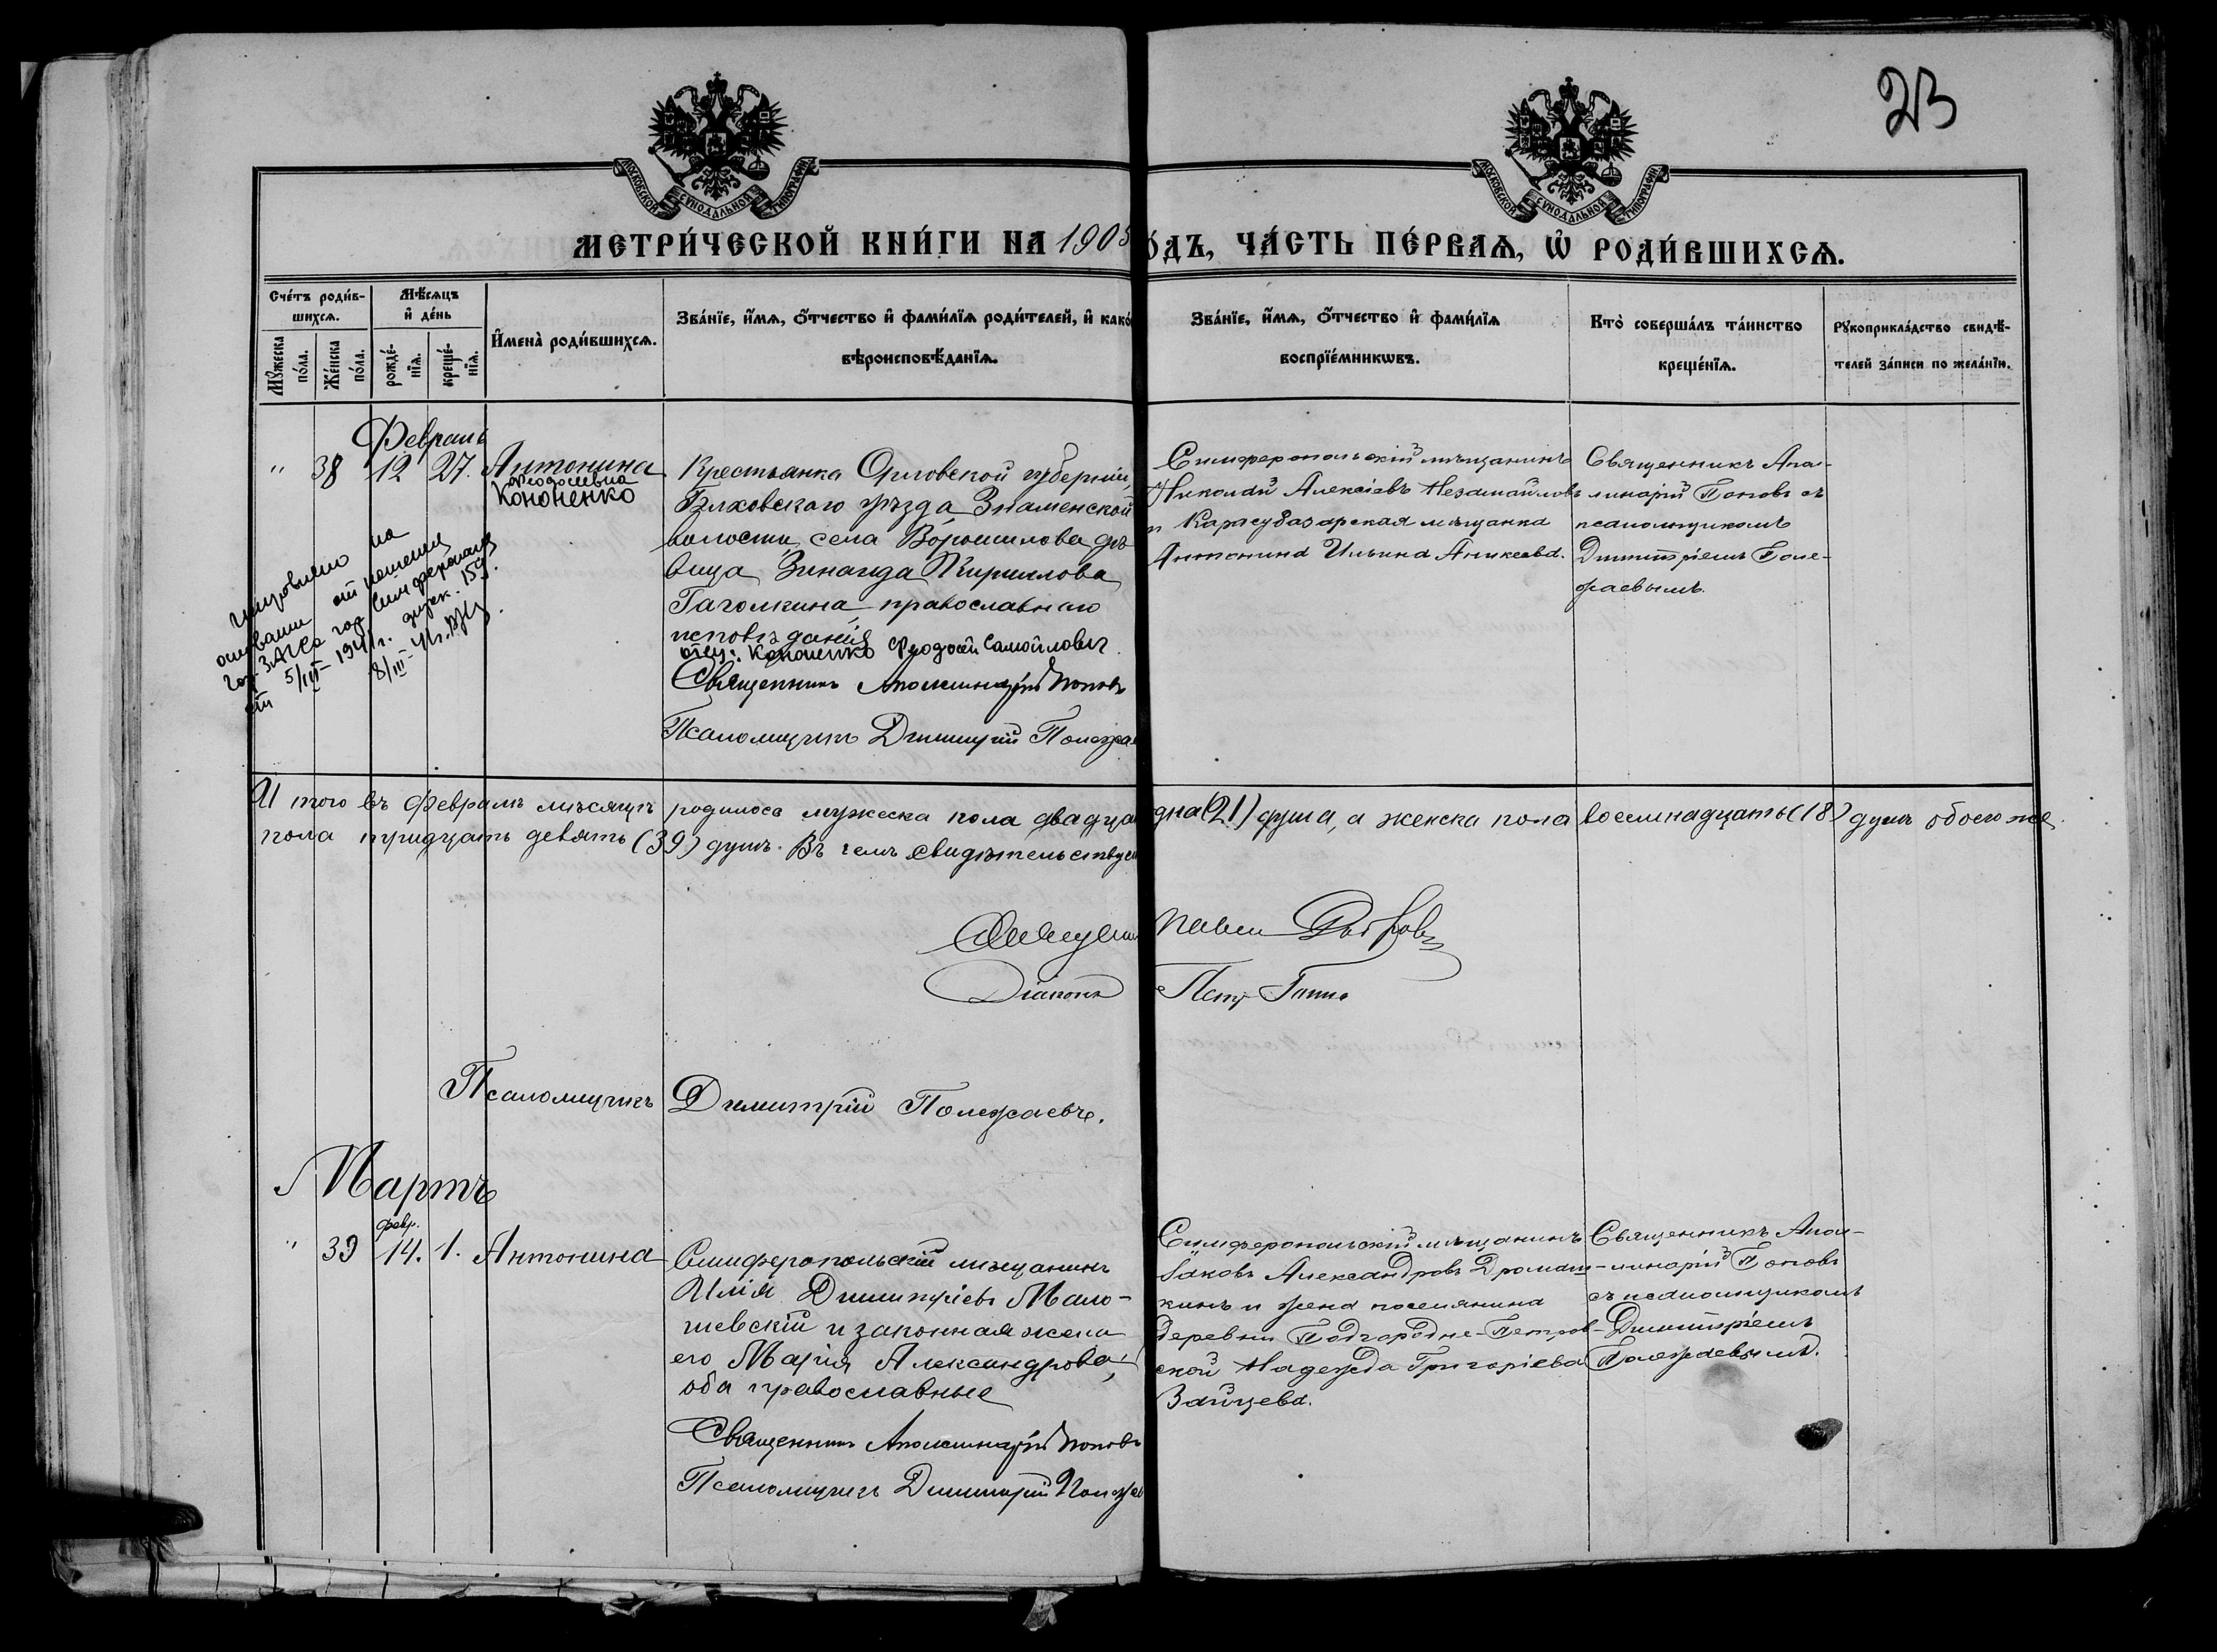 23
МОСКОВСКОЙ СУНОДАЛЬНОЙ ТИПОГРАФИИ
МОСКОВСКОЙ СУНОДАЛЬНОЙ ТИПОГРАФИИ
МЕТРИ́ЧЕСКОЙ КНИ́ГИ НА 1905
О́ДЪ, ЧА́СТЬ ПЕ́РВАѦ, Ѡ҆ РОДИ́ВШИХСѦ.
Сче́тъ роди́в-
шихсѧ.
Мѣ́сѧцъ
и҆ де́нь
Мꙋ́жеска
по́ла.
Же́нска
по́ла.
рожде́-
нїѧ.
креще́-
нїѧ.
И҆мена̀ роди́вшихсѧ.
Зва́нїе, и҆́мѧ, ѻ҆́тчество и҆ фами́лїѧ роди́телей, и҆ како́
вѣроисповѣ́данїѧ.
Зва́нїе, и҆́мѧ, ѻ҆́тчество и҆ фами́лїѧ
воспрїе́мникѡвъ.
Кто̀ соверша́лъ та́инство
креще́нїѧ.
Рꙋкоприкла́дство свидѣ́-
телей за́писи по жела́нїю.
Февраль
" 38 12 27. Антонина
Феодосиевна
Кононенко
Крестьянка Орловской губерніи,
Болховскаго уѣзда Знаменской
волости, села Ворошилова дѣ-
вица Зинаида Кириллова
Гаголкина, православнаго
исповѣданія
отец: Кононенко Феодосий Самойлович.
Священникъ Аполлинарій Поповъ
Псаломщикъ Димитрій Полежае
на
основании отношения
гор. ЗАГСа гор. Симферополя
от 5/III-1941г. 159.
8/III-41г.
Симферопольскій мѣщанинъ
Николай Алексіевъ Незамайловъ
и Карасубазарская мѣщанка
Антонина Ильина Аникеева.
Священникъ Апол-
линарій Поповъ съ
псаломщикомъ
Димитріемъ Поле-
жаевымъ.
И того въ февралѣ мѣсяцѣ родилось мужеска пола двадца
дна (21) душа, а женска пола восемнадцать (18) душъ обоего же
пола тридцать девять (39) душъ. Въ чемъ свидѣтельствуе
Павелъ
Діаконъ Петр
Псаломщикъ Димитрій Полежаевъ.
Мартъ
февр.
" 39 14. 1. Антонина
Симферопольскій мѣщанинъ
Илія Димитріевъ Мало-
шевскій и законная жена
его Марія Александрова,
оба православные
Священникъ Аполлинарій Поповъ
Псаломщикъ Димитрій Полежа
Симферопольскій мѣщанинъ
Іаковъ Александровъ Дромаш-
кинъ и жена поселянина
деревни Подгородне-Петров-
ской Надежда Григоріева
Зайцева.
Священникъ Апол-
линарій Поповъ
съ псаломщикомъ
Димитріемъ
Полежаевымъ.